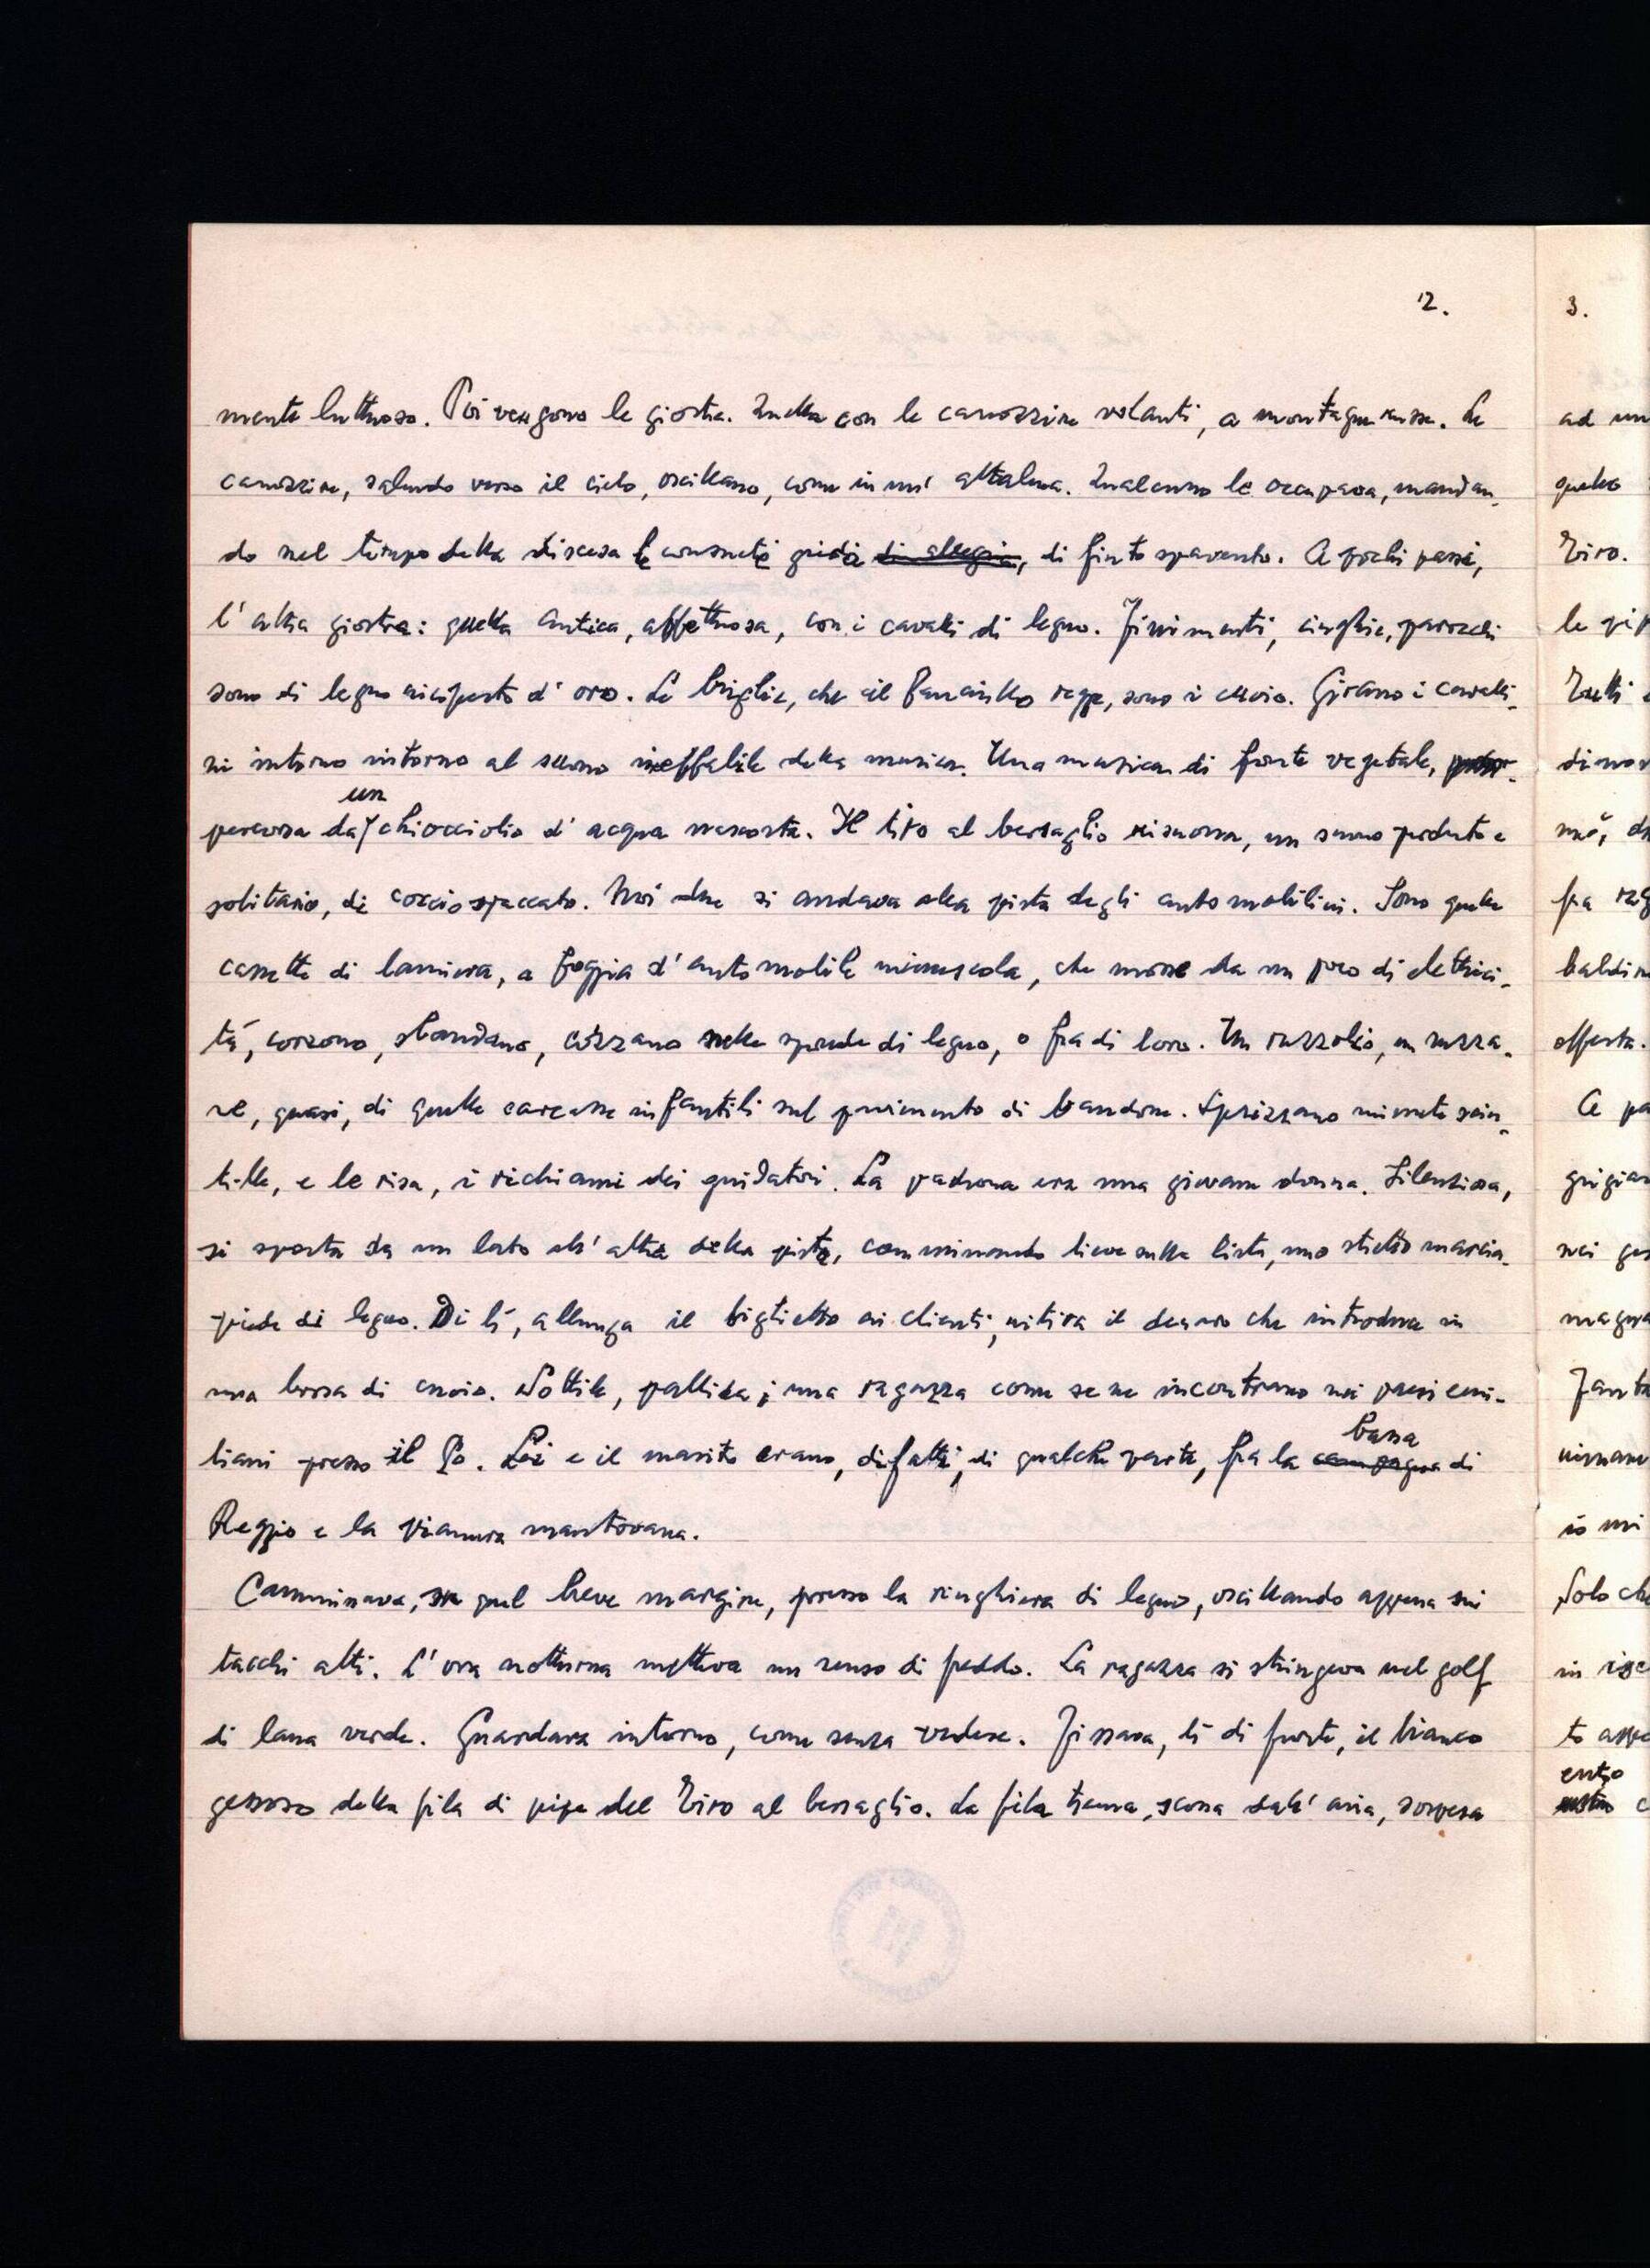 2.
mente luttuoso. Poi vengono le giostre. Quella con le carrozzine volanti, a montagne russe. Le
carrozzine, salendo verso il cielo, oscillano, come in un' altalena. Qualcuno le occupava, mandan-
do nel tempo della discesa le consuete grida di allegria, di finto spavento. A pochi passi,
l' altra giostra: quella antica, affettuosa, con i cavalli di legno. Finimenti, cinghie, parocchi
sono di legno ricoperto d' oro. Le briglie, che il fanciullo regge, sono i cuoio. Girano i cavalli-
ni intorno intorno al suono ineffabile della musica. Una musica di fonte vegetale,
un
percorsa da chiocciolio d' acqua nascosta. Il tiro al bersaglio risuona, un suono perduto e
solitario, di coccio spaccato. Noi due si andava alla pista degli automobilini. Sono quelle
cassette di lamiera, a foggia d' automobile minuscola, che mosse da un poco di elettrici-
tà, corrono, sbandano, cozzano nelle sponde di legno, o fra di loro. Un ruzzolio, un ruzza-
re, quasi, di quelle carcasse infantili sul pavimento di bandone. Sprizzano minute scin-
tille, e le risa, i richiami dei guidatori. La padrona era una giovane donna. Silenziosa,
si sposta da un lato all' altro della pista, camminando lieve sulla lista, uno stretto marcia-
piede di legno. Di lì, allunga il biglietto ai clienti, ritira il denaro che introduce in
una borsa di cuoio. Sottile, pallida; una ragazza come se ne incontrano nei paesi emi-
liani presso il Po. Lei e il marito erano, difatti, di qualche parte, fra la campagna di
bassa
Reggio e la pianura mantovana.
Camminava, su quel breve margine, presso la ringhiera di legno, oscillando appena sui
tacchi alti. L' ora notturna metteva un senso di freddo. La ragazza si stringeva nel golf
di lana verde. Guardava intorno, come senza vedere. Fissava, lì di fronte, il bianco
gessoso della fila di pipe del Tiro al bersaglio. La fila trema, scossa dall' aria, sorpesa
3.
ad un
quelle
Tiro.
le pip
Tutti
baldi
offerta.
A pa
nei ges
magra
io mi
Solo che
entro